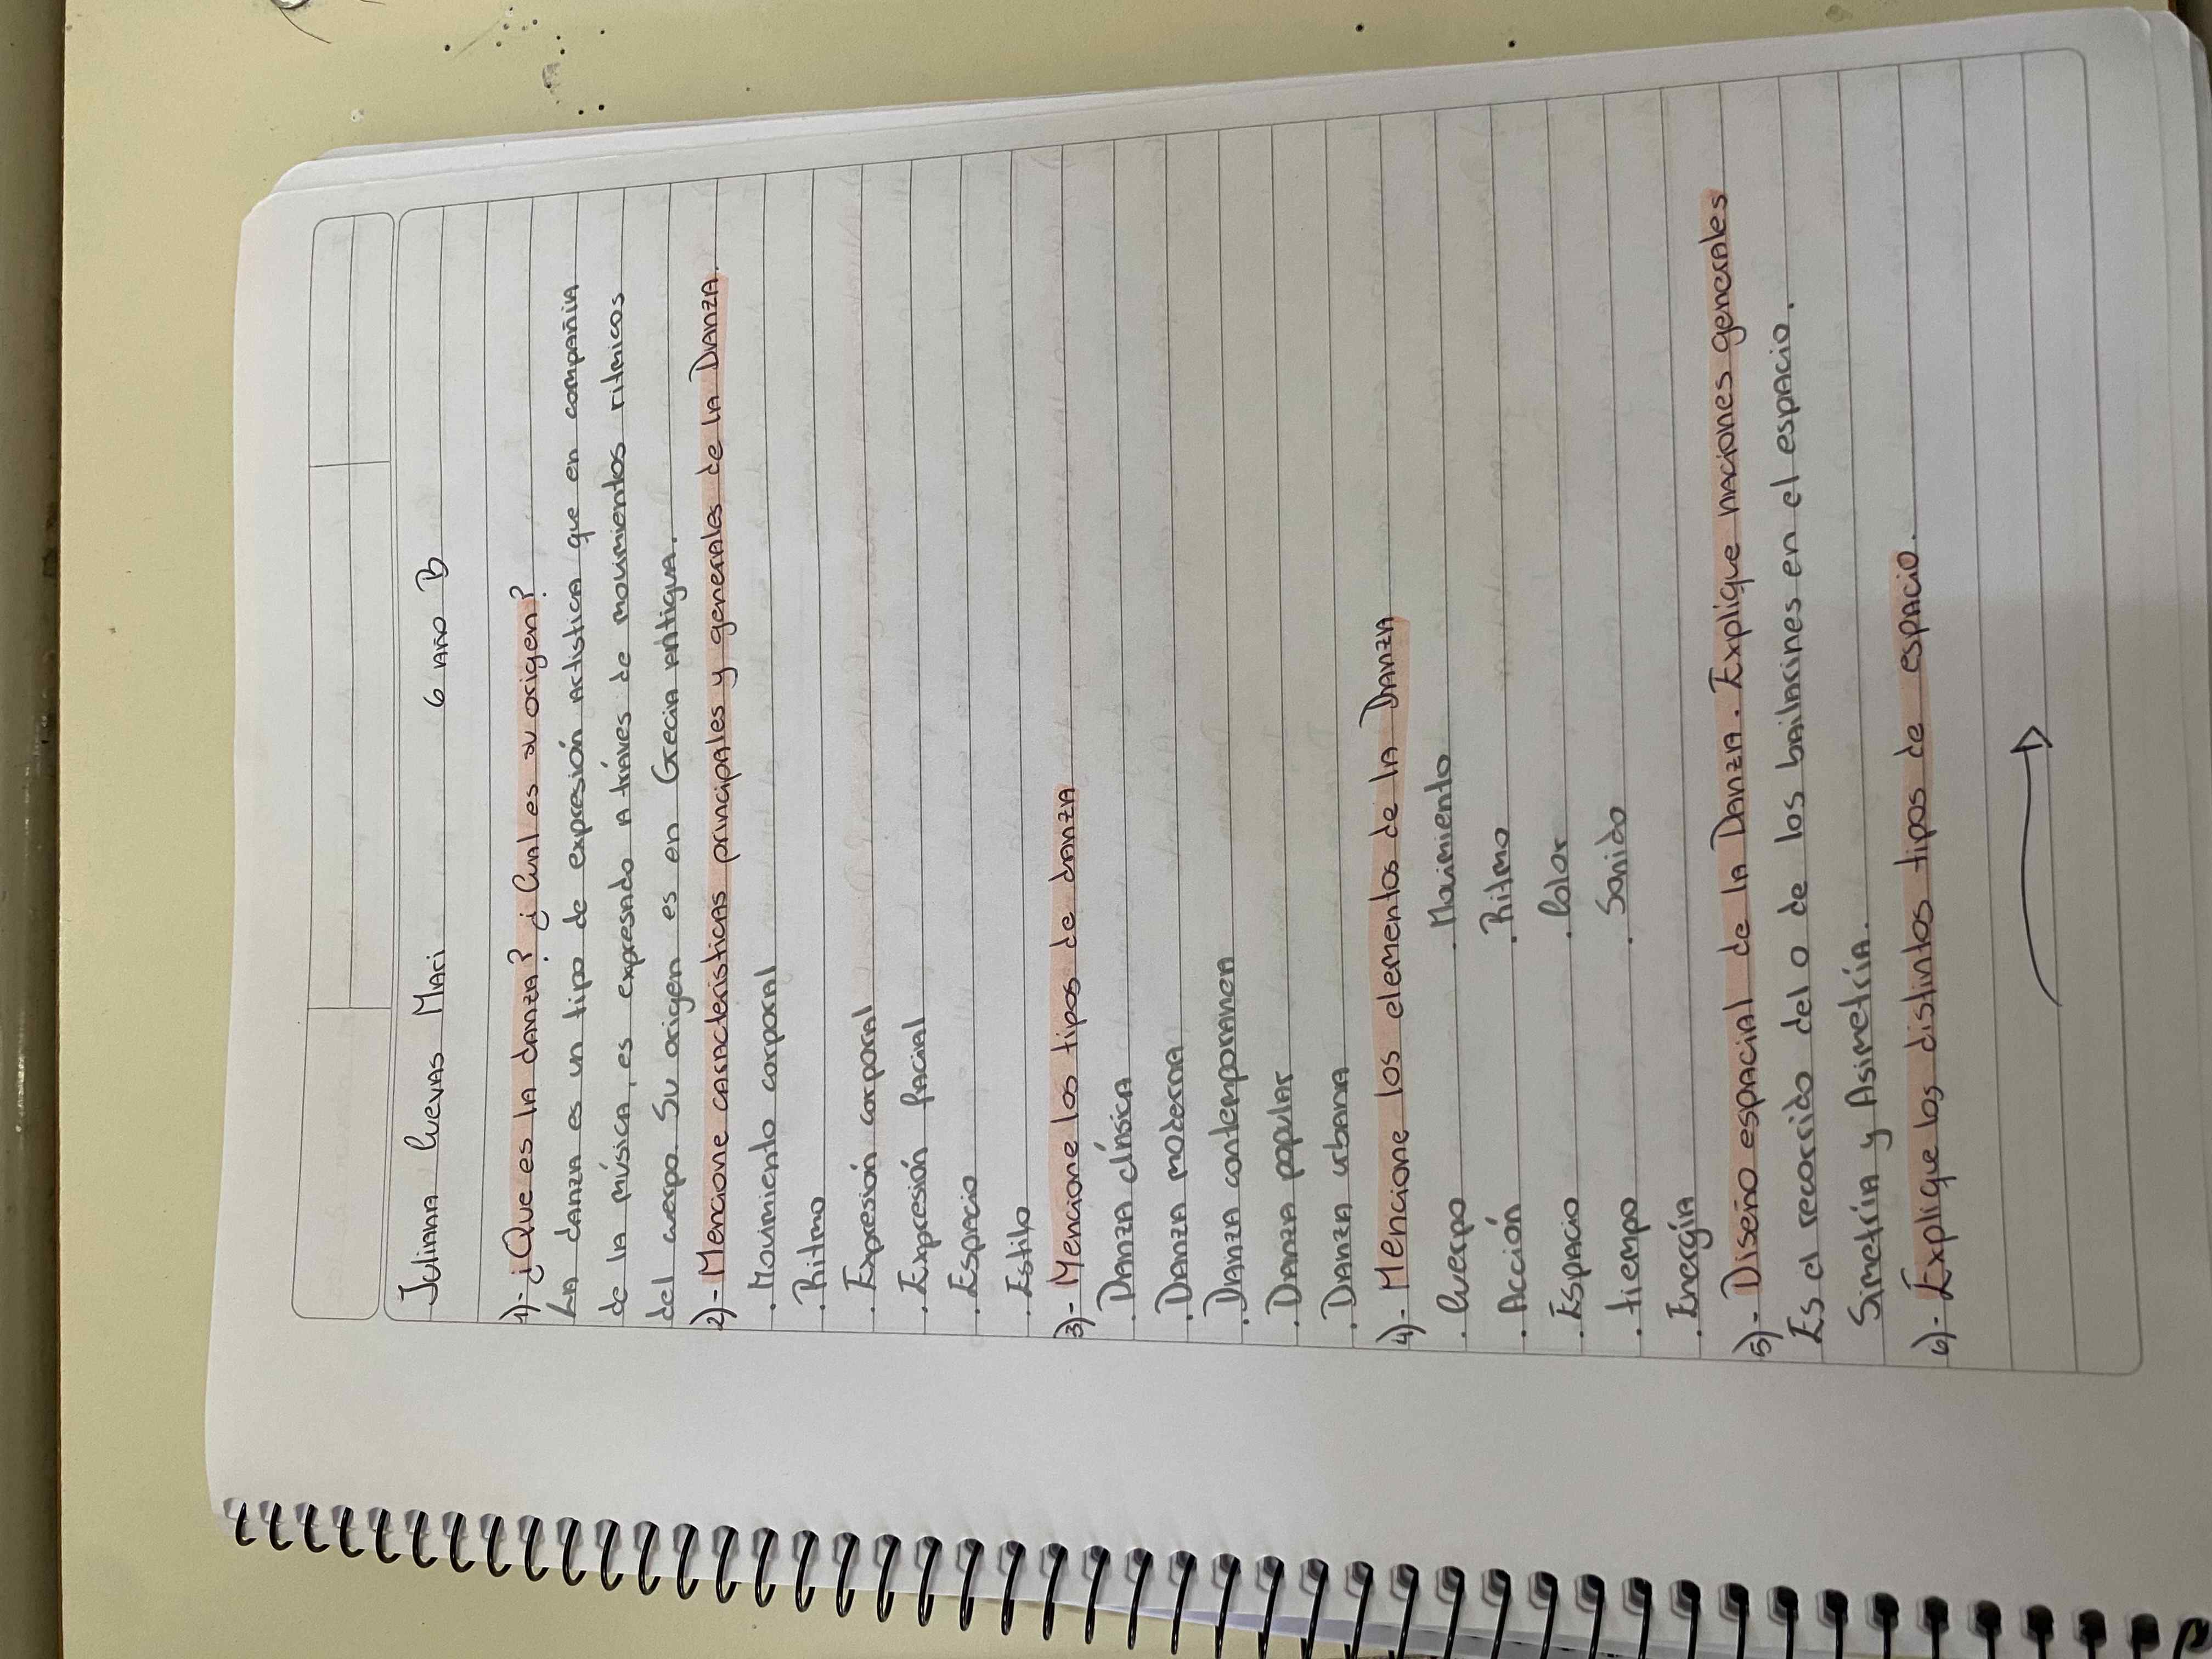 Juliana Cuevas Mari 6 año B
1)- ¿Que es la danza? ¿Cual es su origen?
La danza es un tipo de expresión artistica que en compañia
de la música, es expresado a tráves de movimientos ritmicos
del cuerpo. Su origen es en Grecia antigua.
2)- Mencione caracteristicas principales y generales de la Danza.
. Movimiento corporal
. Ritmo
. Expresión corporal
. Expresión facial
. Espacio
. Estilo
3)- Mencione los tipos de danza
. Danza clásica
. Danza moderna
. Danza contemporanea
. Danza popular
. Danza urbana
4)- Mencione los elementos de la Danza
. Cuerpo . Movimiento
. Acción . Ritmo
. Espacio . Color
. tiempo . Sonido
. Energía
5)- Diseño espacial de la Danza. Explique naciones generales
Es el recorrido del o de los bailarines en el espacio.
Simetría y Asimetría.
6)- Explique los distintos tipos de espacio.